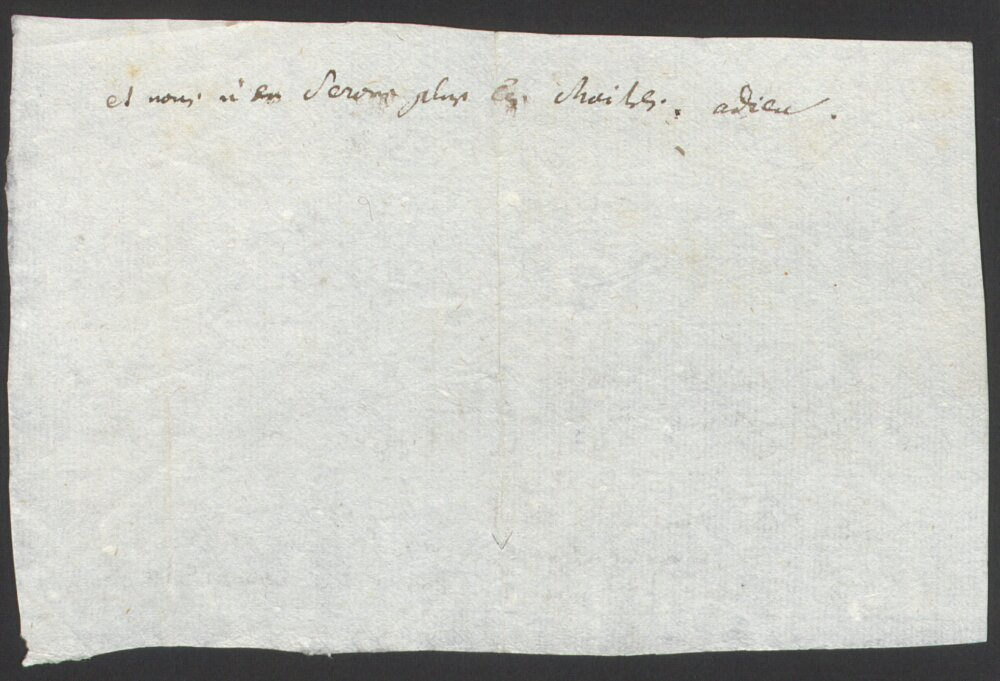 et nous n'en serons plus les . adieu .